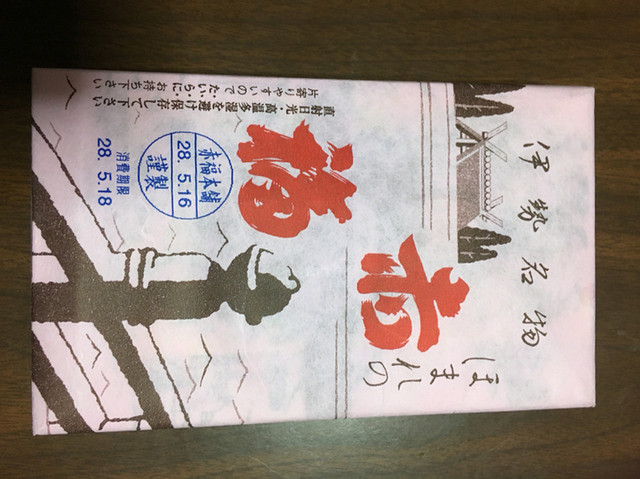 伊勢名物
ほまれの
赤福
直射日光・高温多湿を避け保存して下さい
片寄りやすいのでたいらにお持ち下さい
赤福本舗
28.5.16
謹製
消費期限
28.5.18